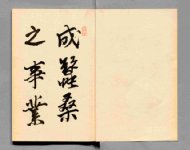 成蠶桑
之事業